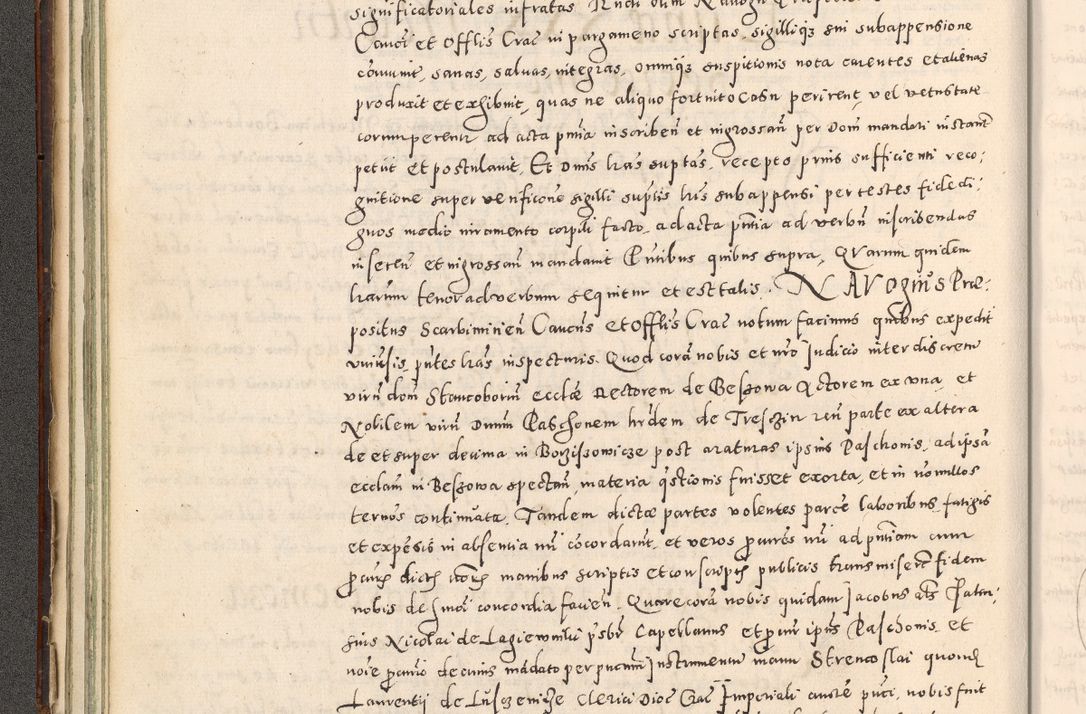 significatoriales infratas
Canci et Offlis Crac in pargameno scriptas, sigilliq3 sui subappensione
comunit, sanas, saluas, integras, omniq3 suspitionis nota carentes et alienas
produxit et exhibuit, quas ne aliquo fortuito casu perirent, vel vetustate
corrumperentur ad acta pntia inscriben et ingrossan per Dom mandari instant
petiit et postulauit. Et Dnus lras suptas, recepto prius sufficienti reco;
gnitione super verificone sigilli suptis lris subappensi per testes fide di;
gnos medio iuramento corpili facto, ad acta pntia ad verbu inscribendas
inseren et ingrossan mandauit Pntibus quibus supra, Quarum quidem
lrarum tenor ad verbum sequitur et est talis. NAVogius Præ;
positus Scarbimirien Cancus et Offlis Crac notum facimus quibus expedit
vniuersis pntes lras inspecturis. Quod cora nobis et nro Judicio inter discretu
viru dom Stancoborium ecclæ Rectorem de Beszowa Actorem ex vna, et
Nobilem viru Dnum Paschonem hrdem de Treszin reu parte ex altera
de et super decima in Borzissowicze post araturas ipsius Paschonis, ad ipsa
ecclam in Beszowa spectan, materia qstionis fuisset exorta, et in nonnullos
ternos continuata, Tandem dictæ partes volentes parce laboribus, fatigis
et expesis in absentia nri cocordarut, et veros pcurres nri ad pntiam cum
pcurs dictis manibus scriptis et conscriptis publicis transmiserut fidem
nobis de hmoi concordia facien. Quare cora nobis quidam Jacobus als Patri;
suis Nicolai de Lagiewniki psbr Capellanus et pcur ipsius Paschonis, et
noie pcurio de cuius mādato per pucum Instrumentum manu Strencoslai quond
Laurentii de Lusczenicze Clerici Dioc Crac Imperiali aucte puci, nobis fuit